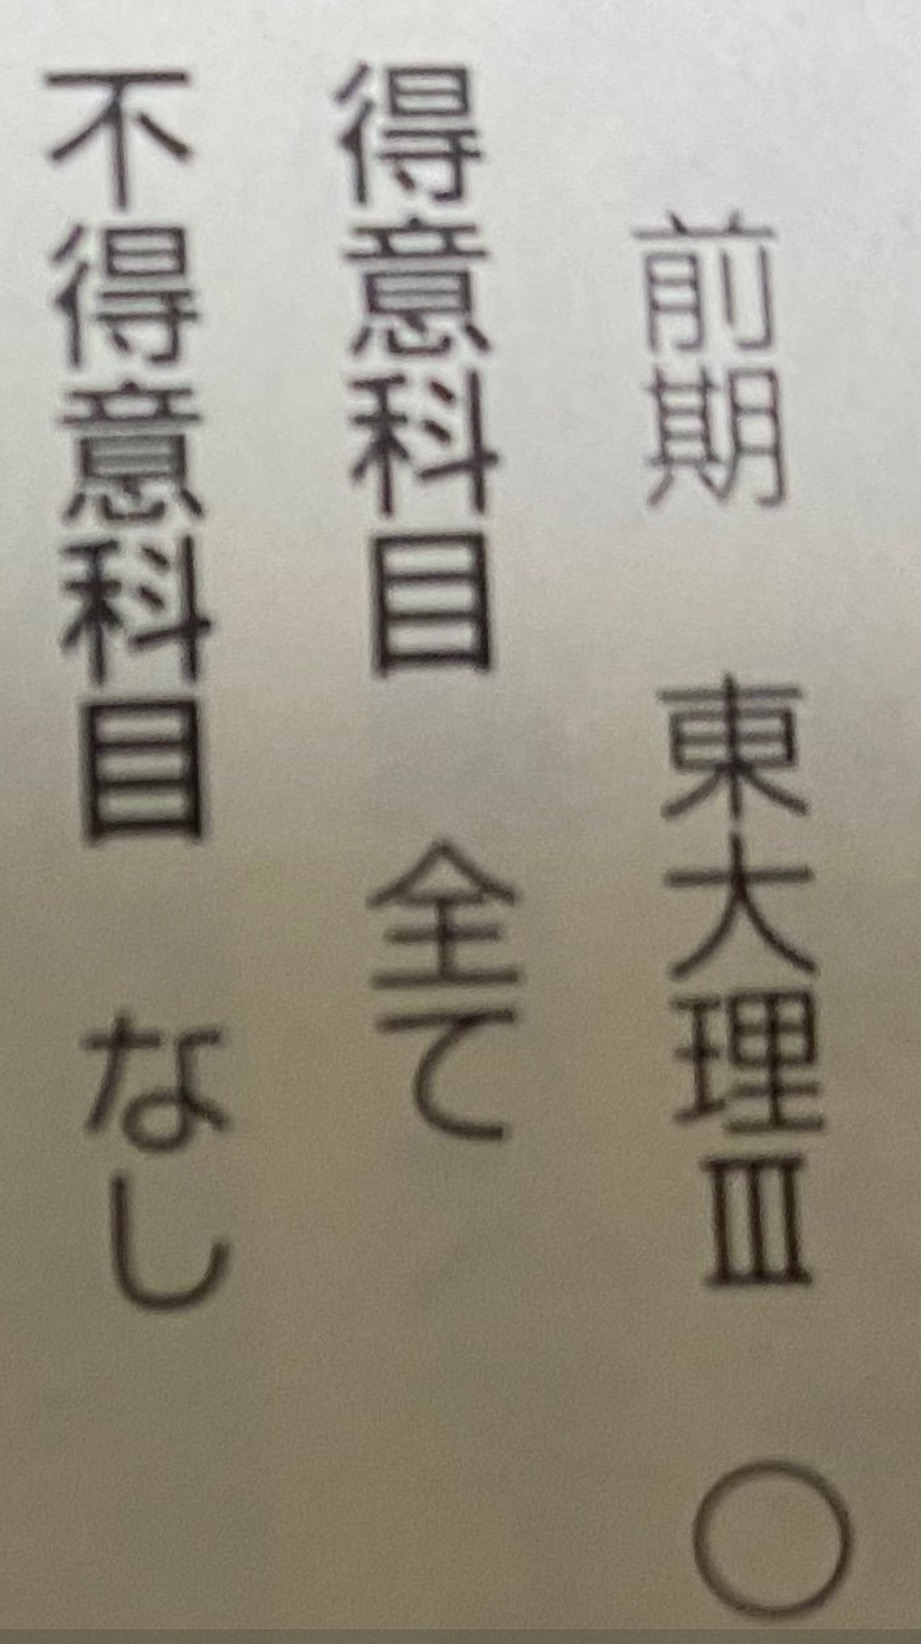 前期　東大理Ⅲ　○
得意科目　全て
不得意科目　なし